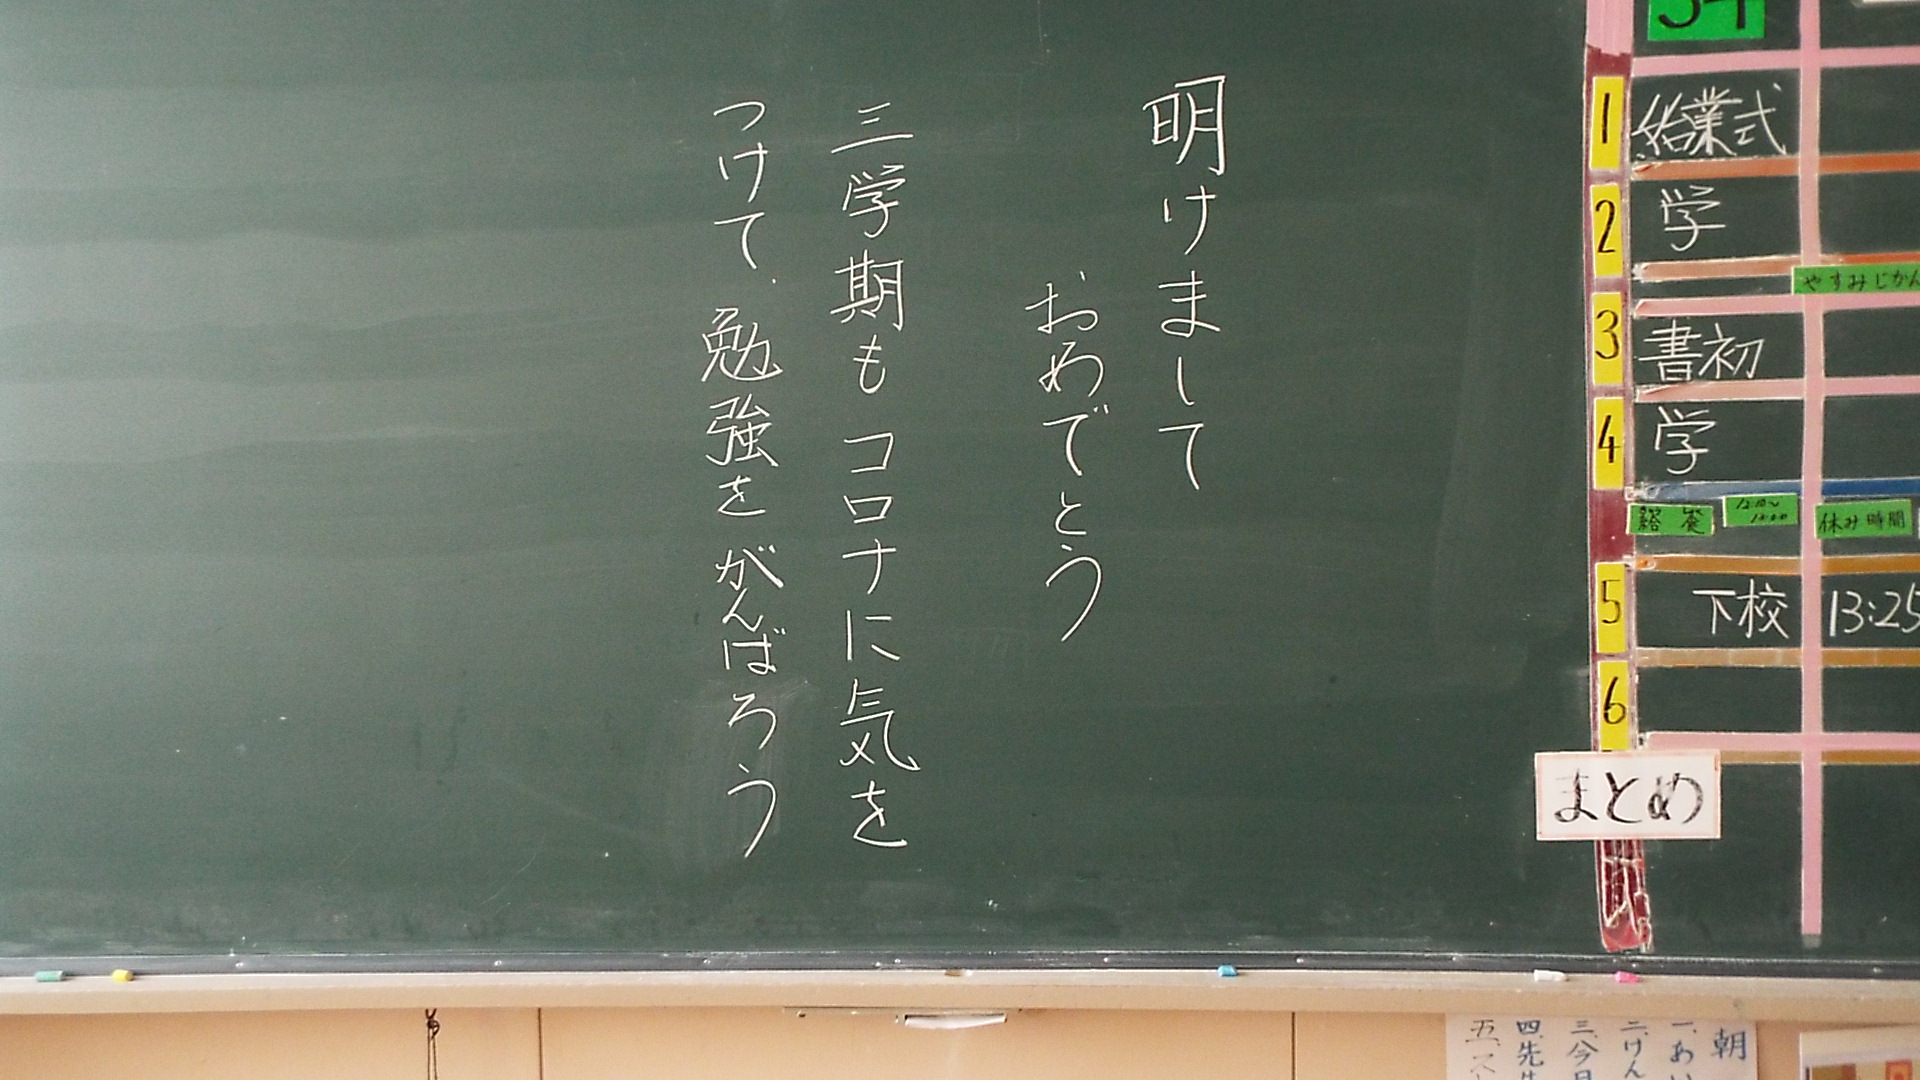 明けまして
おめでとう
三学期もコロナに気を
つけて勉強をがんばろう
1 始業式
2 学
やすみじかん
3 書初
4 学
給食
休み時間
5 下校 13:25
6
まとめ
朝
一、あい
二、けん
三、今日
四、先生
五、